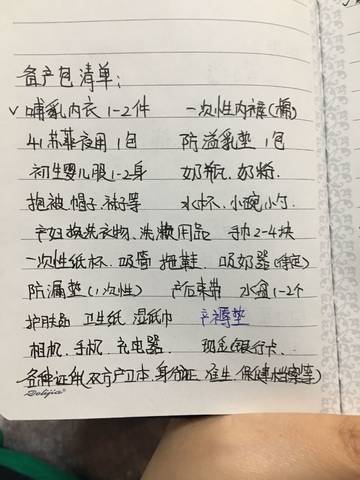 备产包清单：
∨哺乳内衣1-2件 一次性内裤(棉)
41苏菲夜用1包 防溢乳垫1包
初生婴儿服1-2身 奶瓶、奶粉
抱被、帽子、袜子等 水杯、小碗小勺
产妇换洗衣物、洗漱用品 手巾2-4块
一次性纸杯、吸管、拖鞋、吸奶器(待定)
防漏垫(一次性) 产后束带 水盆1-2个
护肤品 卫生纸 湿纸巾 产褥垫
相机、手机、充电器、 现金(银行卡、
各种证件(双方户口本、身份证、准生、保健档案等)
Delijia